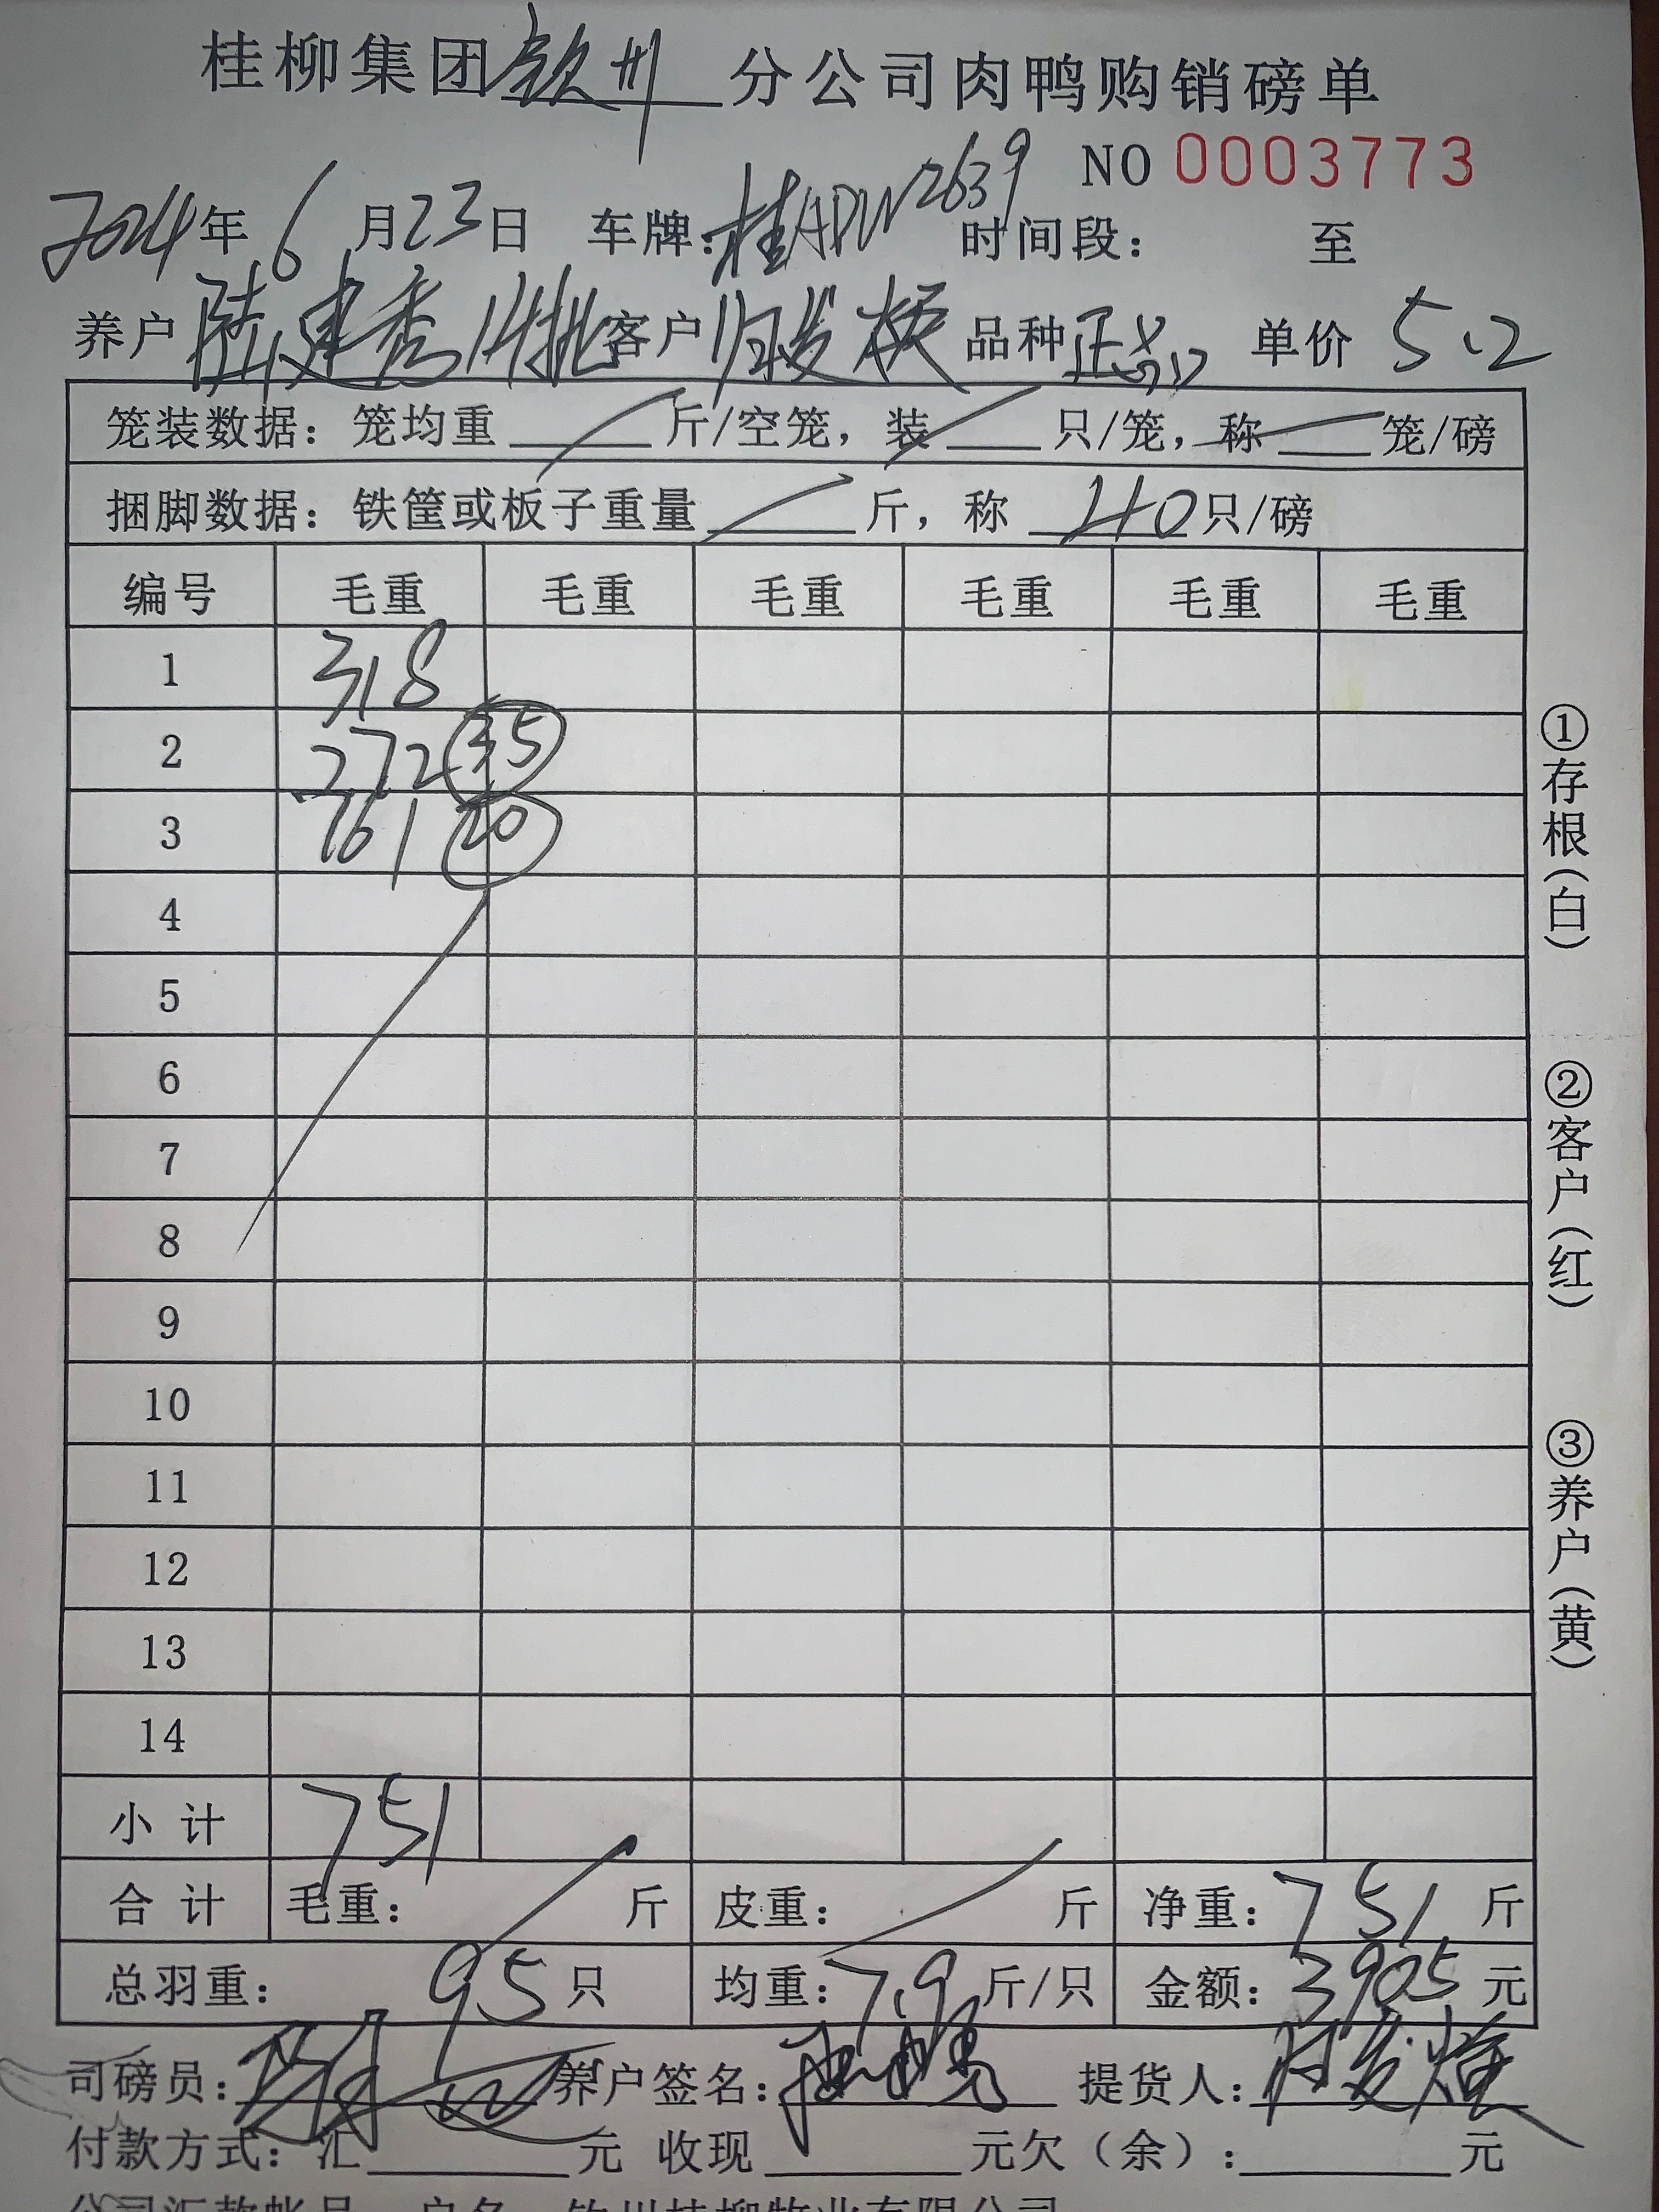 桂柳集团钦州分公司肉鸭购销磅单
NO 0003773
2024年6月23日 车牌:桂ADW2639 时间段: 至
养户陆建秀14批 客户 发 品种 单价5.2
笼装数据: 笼均重 斤/空笼, 装 只/笼, 称 笼/磅
捆脚数据: 铁筐或板子重量 斤, 称 40只/磅
编号 毛重 毛重 毛重 毛重 毛重 毛重
1 318
2 272 35
3 161 20
4
5
6
7
8
9
10
11
12
13
14
小计 751
合计 毛重: 斤 皮重: 斤 净重: 751 斤
总羽重: 95 只 均重: 7.9 斤/只 金额: 3905 元
司磅员: 养户签名: 提货人:
付款方式: 汇 元 收现 元欠(余): 元
公司汇款帐号 户名 钦州桂柳牧业有限公司
①存根(白)
②客户(红)
③养户(黄)